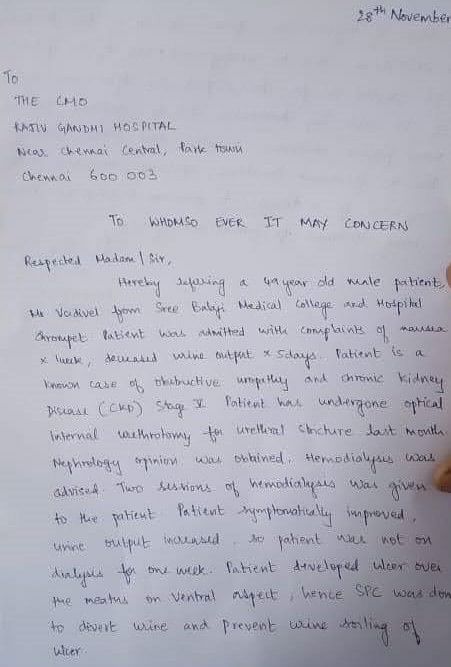 28th November
To
THE CMO
RAJIV GANDHI HOSPITAL
Near Chennai Central, Park town
Chennai 600 003
TO WHOMSO EVER IT MAY CONCERN
Respected Madam / Sir,
Hereby refering a 49 year old male patient,
Mr Vadivel from Sree Balaji Medical College and Hospital
Chrompet. Patient was admitted with complaints of nausea
x 1week, decreased urine output x 5days. Patient is a
known case of obstructive uropathy and chronic kidney
Disease (CKD) Stage V. Patient has undergone optical
internal urethrotomy for urethral stricture last month.
Nephrology opinion was obtained. Hemodialysis was
advised. Two sessions of hemodialysis was given
to the patient. Patient symptomatically improved,
urine output increased, so patient was not on
dialysis for one week. Patient developed ulcer over
the meatus on ventral aspect, hence SPC was don
to divert urine and prevent urine soiling of
ulcer.